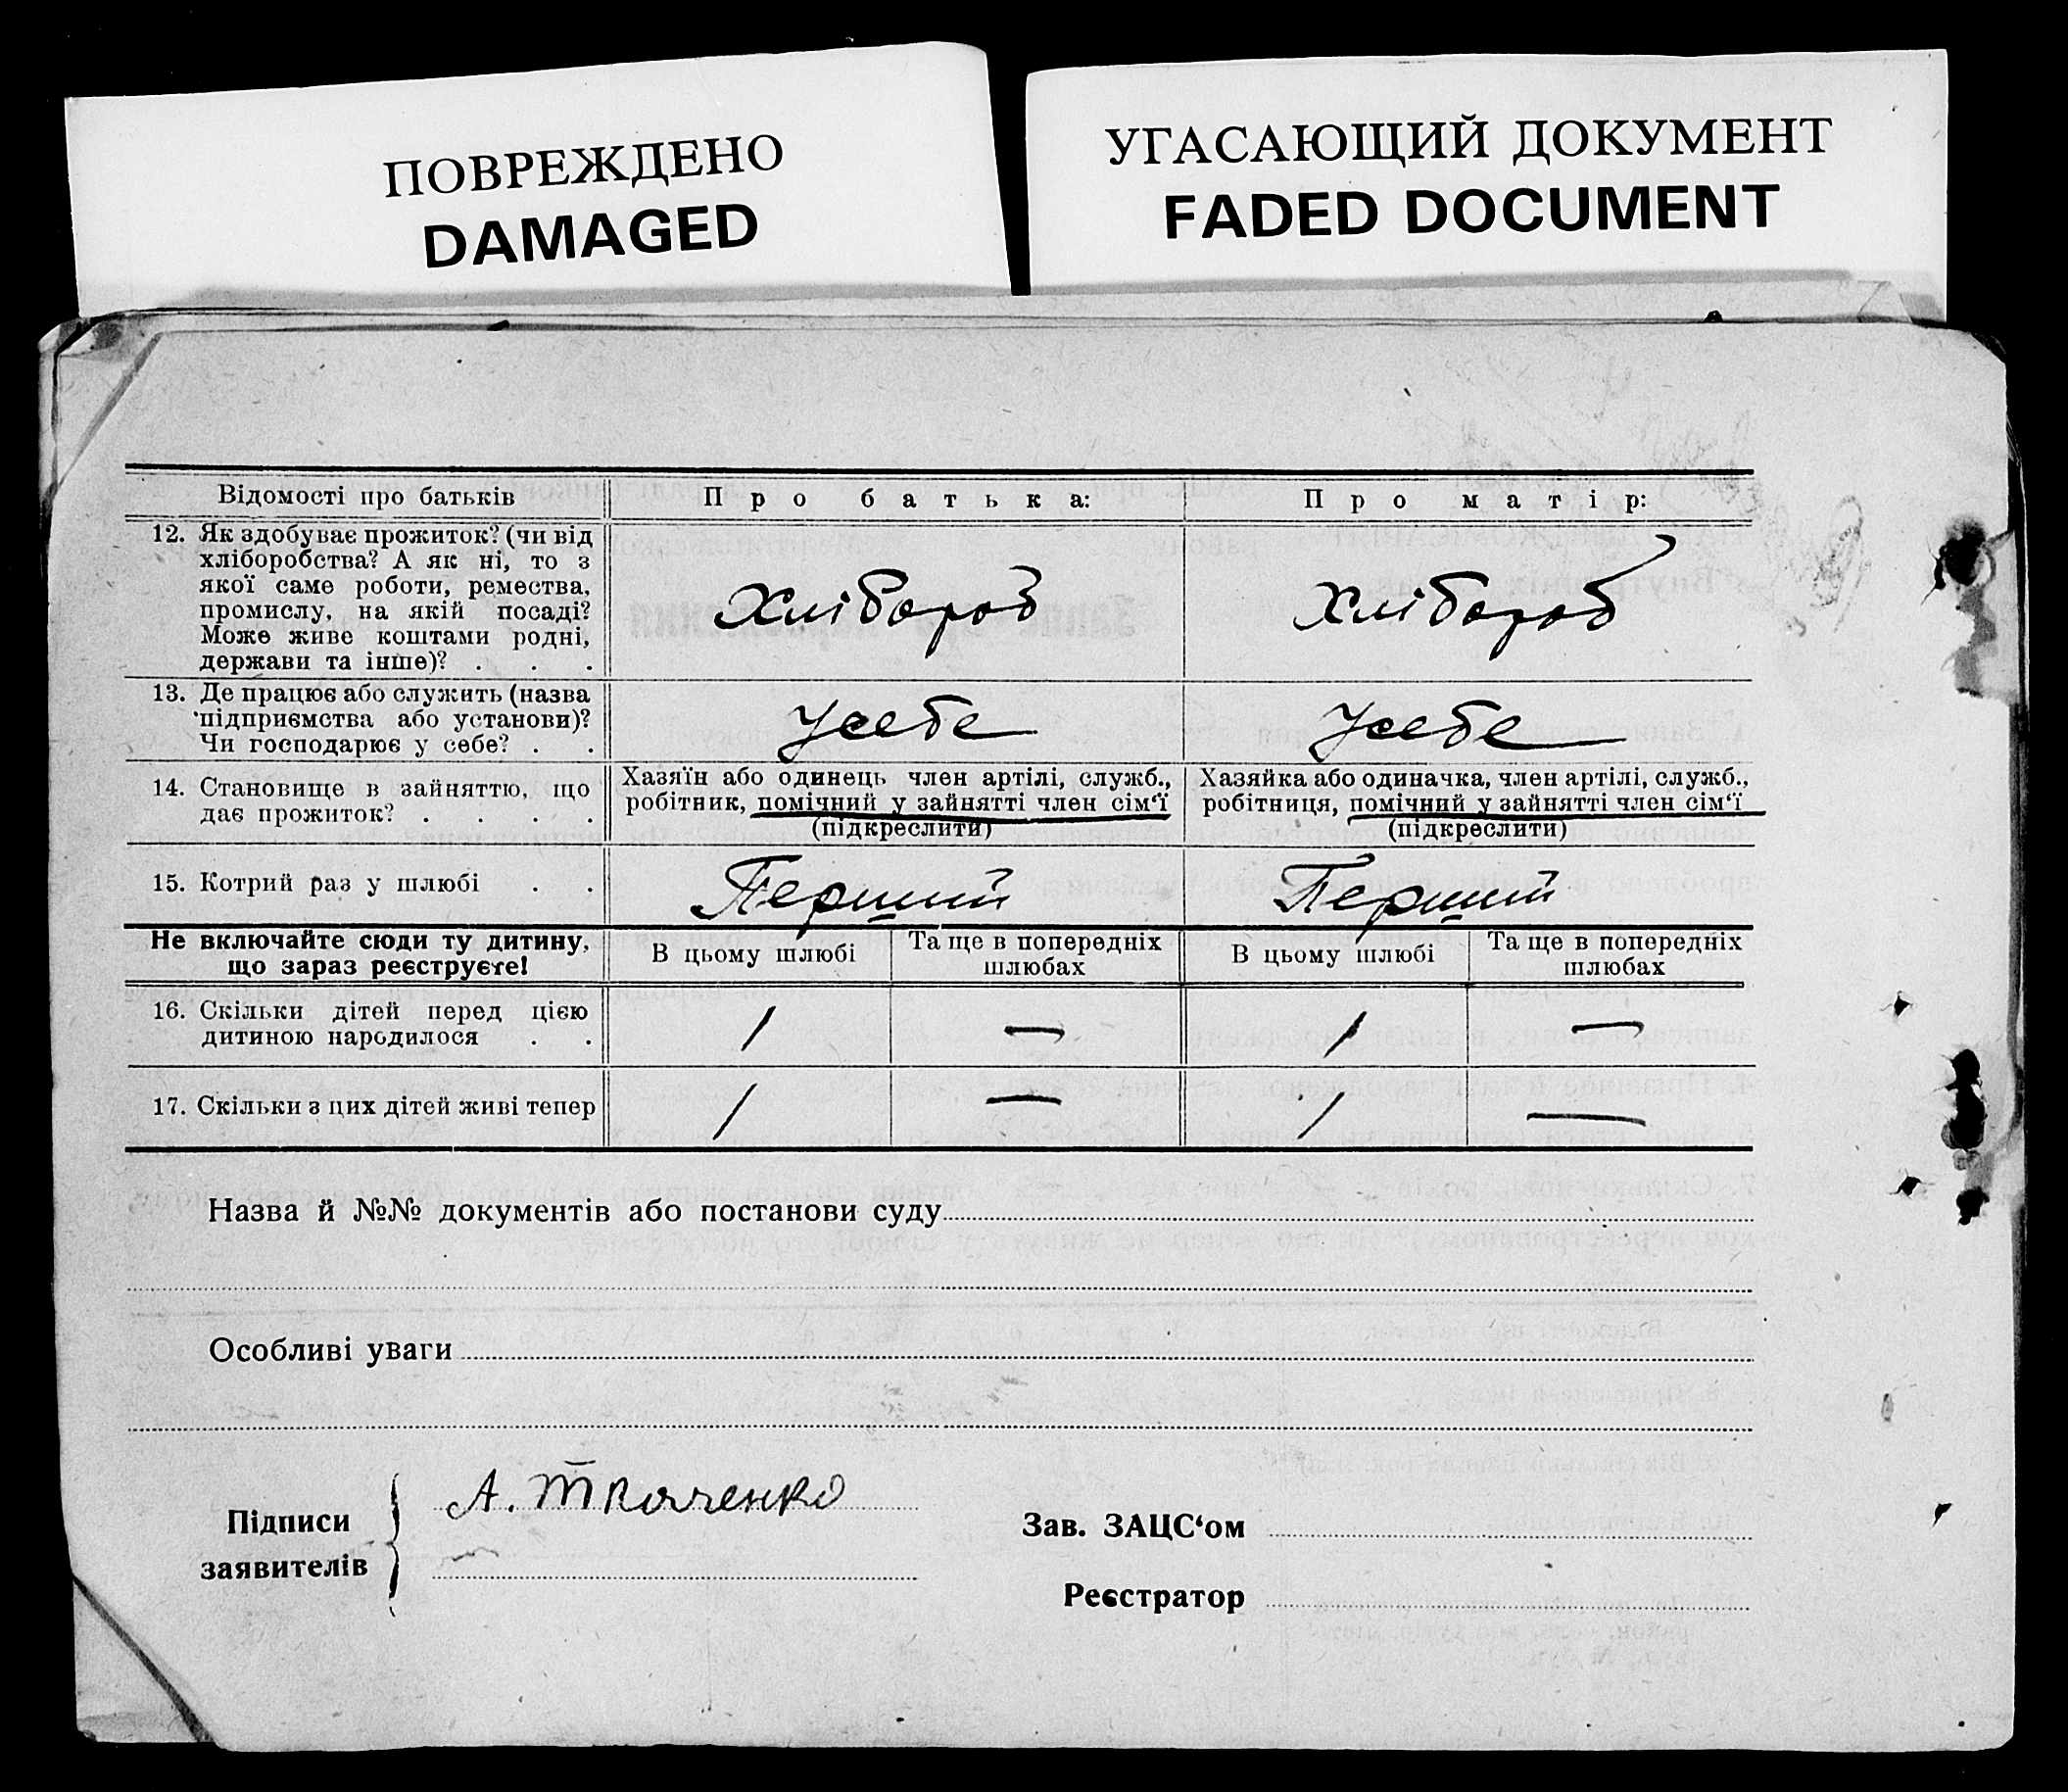 ПОВРЕЖДЕНО
DAMAGED
УГАСАЮЩИЙ ДОКУМЕНТ
FADED DOCUMENT
Відомості про батьків
Про батька:
Про матір:
12. Як здобуває прожиток? (чи від
хліборобства? А як ні, то з
якої саме роботи, ремества,
промислу, на якій посаді?
Може живе коштами родні,
держави та інше)? . . .
Хлібороб
Хлібороб
13. Де працює або служить (назва
підприємства або установи)?
Чи господарює у себе? . .
Усебе
Усебе
14. Становище в зайняттю, що
дає прожиток? . . . .
Хазяїн або одинець член артілі, служб.,
робітник, помічний у зайнятті член сім‘ї
(підкреслити)
Хазяйка або одиначка, член артілі, служб.,
робітниця, помічний у зайнятті член сім‘ї
(підкреслити)
15. Котрий раз у шлюбі . .
Перший
Перший
Не включайте сюди ту дитину,
що зараз реєструєте!
В цьому шлюбі
Та ще в попередніх
шлюбах
В цьому шлюбі
Та ще в попередніх
шлюбах
16. Скільки дітей перед цією
дитиною народилося . .
1
—
1
—
17. Скільки з цих дітей живі тепер
1
—
1
—
Назва й №№ документів або постанови суду
Особливі уваги
Підписи
заявителів
А. Ткаченко
Зав. ЗАЦС‘ом
Реєстратор